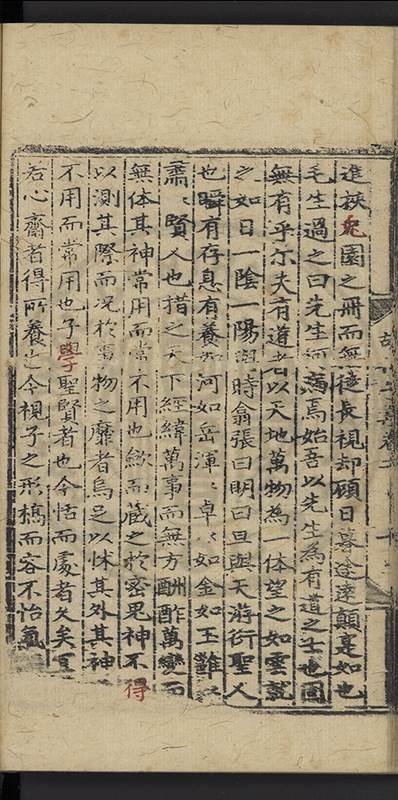 進裌兔園之冊而無徒長視却顧日暮途遠顛寔如也
毛生過之曰先生何病焉始吾以先生為有道之士也固
無有乎尔夫有道者以天地萬物為一体望之如雲就
之如日一陰一陽與時翕張曰明曰旦與天游衍聖人
也瞬有存息有養如河如岳渾〻卓〻如金如玉難
肅〻賢人也措之天下經緯萬事而無方酬酢萬變而
無体其神常用而常不用也斂而藏之於密鬼神不得
以測其際而况於事物之靡者烏足以怵其外其神
不用而常用也子學聖賢者也今恬而處者久矣宜
若心齋者得所養也今視子之形槁而容不怡氣